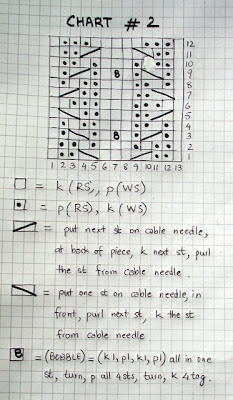 CHART # 2
12
11
10
9
B
8
7
6
5
4
B
3
2
1
1 2 3 4 5 6 7 8 9 10 11 12 13
= k (RS), p(WS)
= p(RS), k (WS)
= put next st on cable needle,
at back of piece, k next st, purl
the st from cable needle.
= put one st on cable needle, in
front, purl next st, k the st
from cable needle
B = (BOBBLE) = (k1, p1, k1, p1) all in one
st, turn, p all 4sts, turn, k 4 tog.